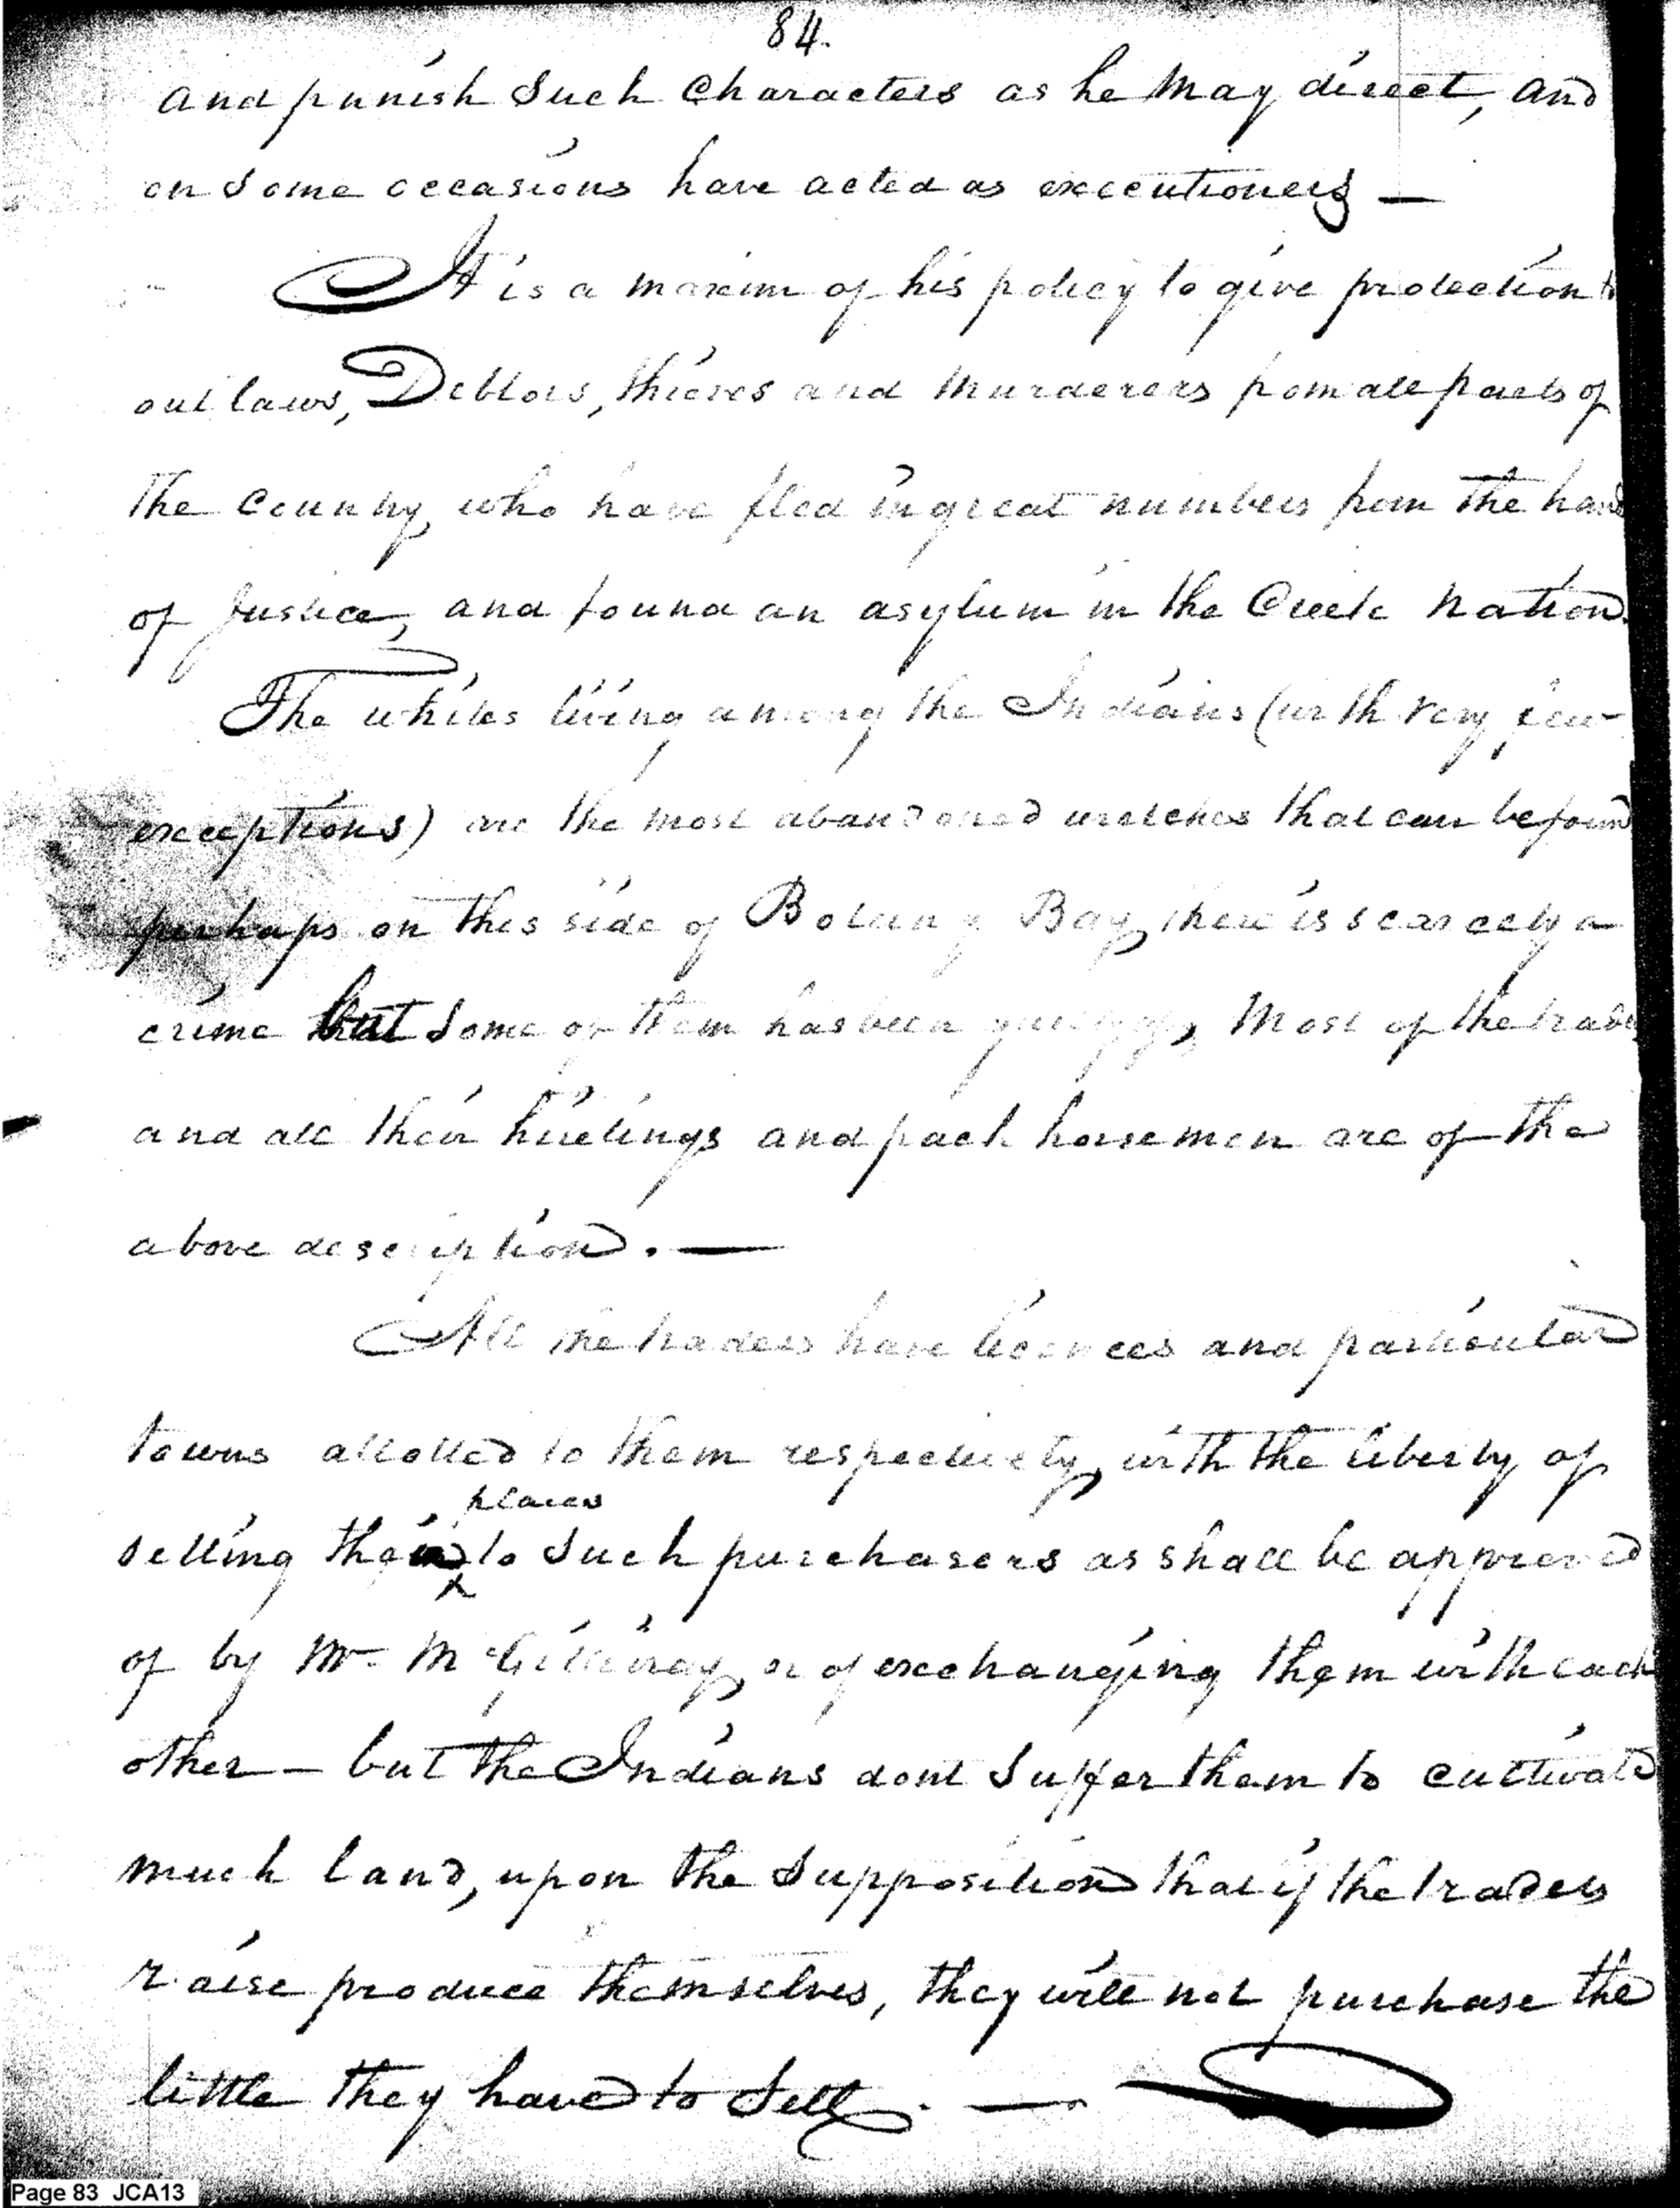 84.
and punish Such Characters as he May direct, and
on Some occasions have acted as executioners —
It is a maxim of his policy to give protection to
out laws, Debtors, thieves and Murderers from all parts of
the Country, who have fled in great numbers from the hand
of Justice, and found an asylum in the Creek Nation.
The whites living among the Indians (with very few
exceptions) are the most abandoned wretches that can be found
perhaps on this side of Botany Bay, there is scarcely a
crime but Some of them has been guilty of, Most of the traders
and all their hirelings and pack horsemen are of the
above description. —
All the traders have licences and particular
towns allotted to them respectively, with the liberty of
places
selling their to Such purchasers as shall be approved
of by Mr. McGillivray, or of exchanging them with each
other — but the Indians dont Suffer them to cultivate
much land, upon the Supposition that if the traders
raise produce themselves, they will not purchase the
little they have to Sell. —
Page 83 JCA13